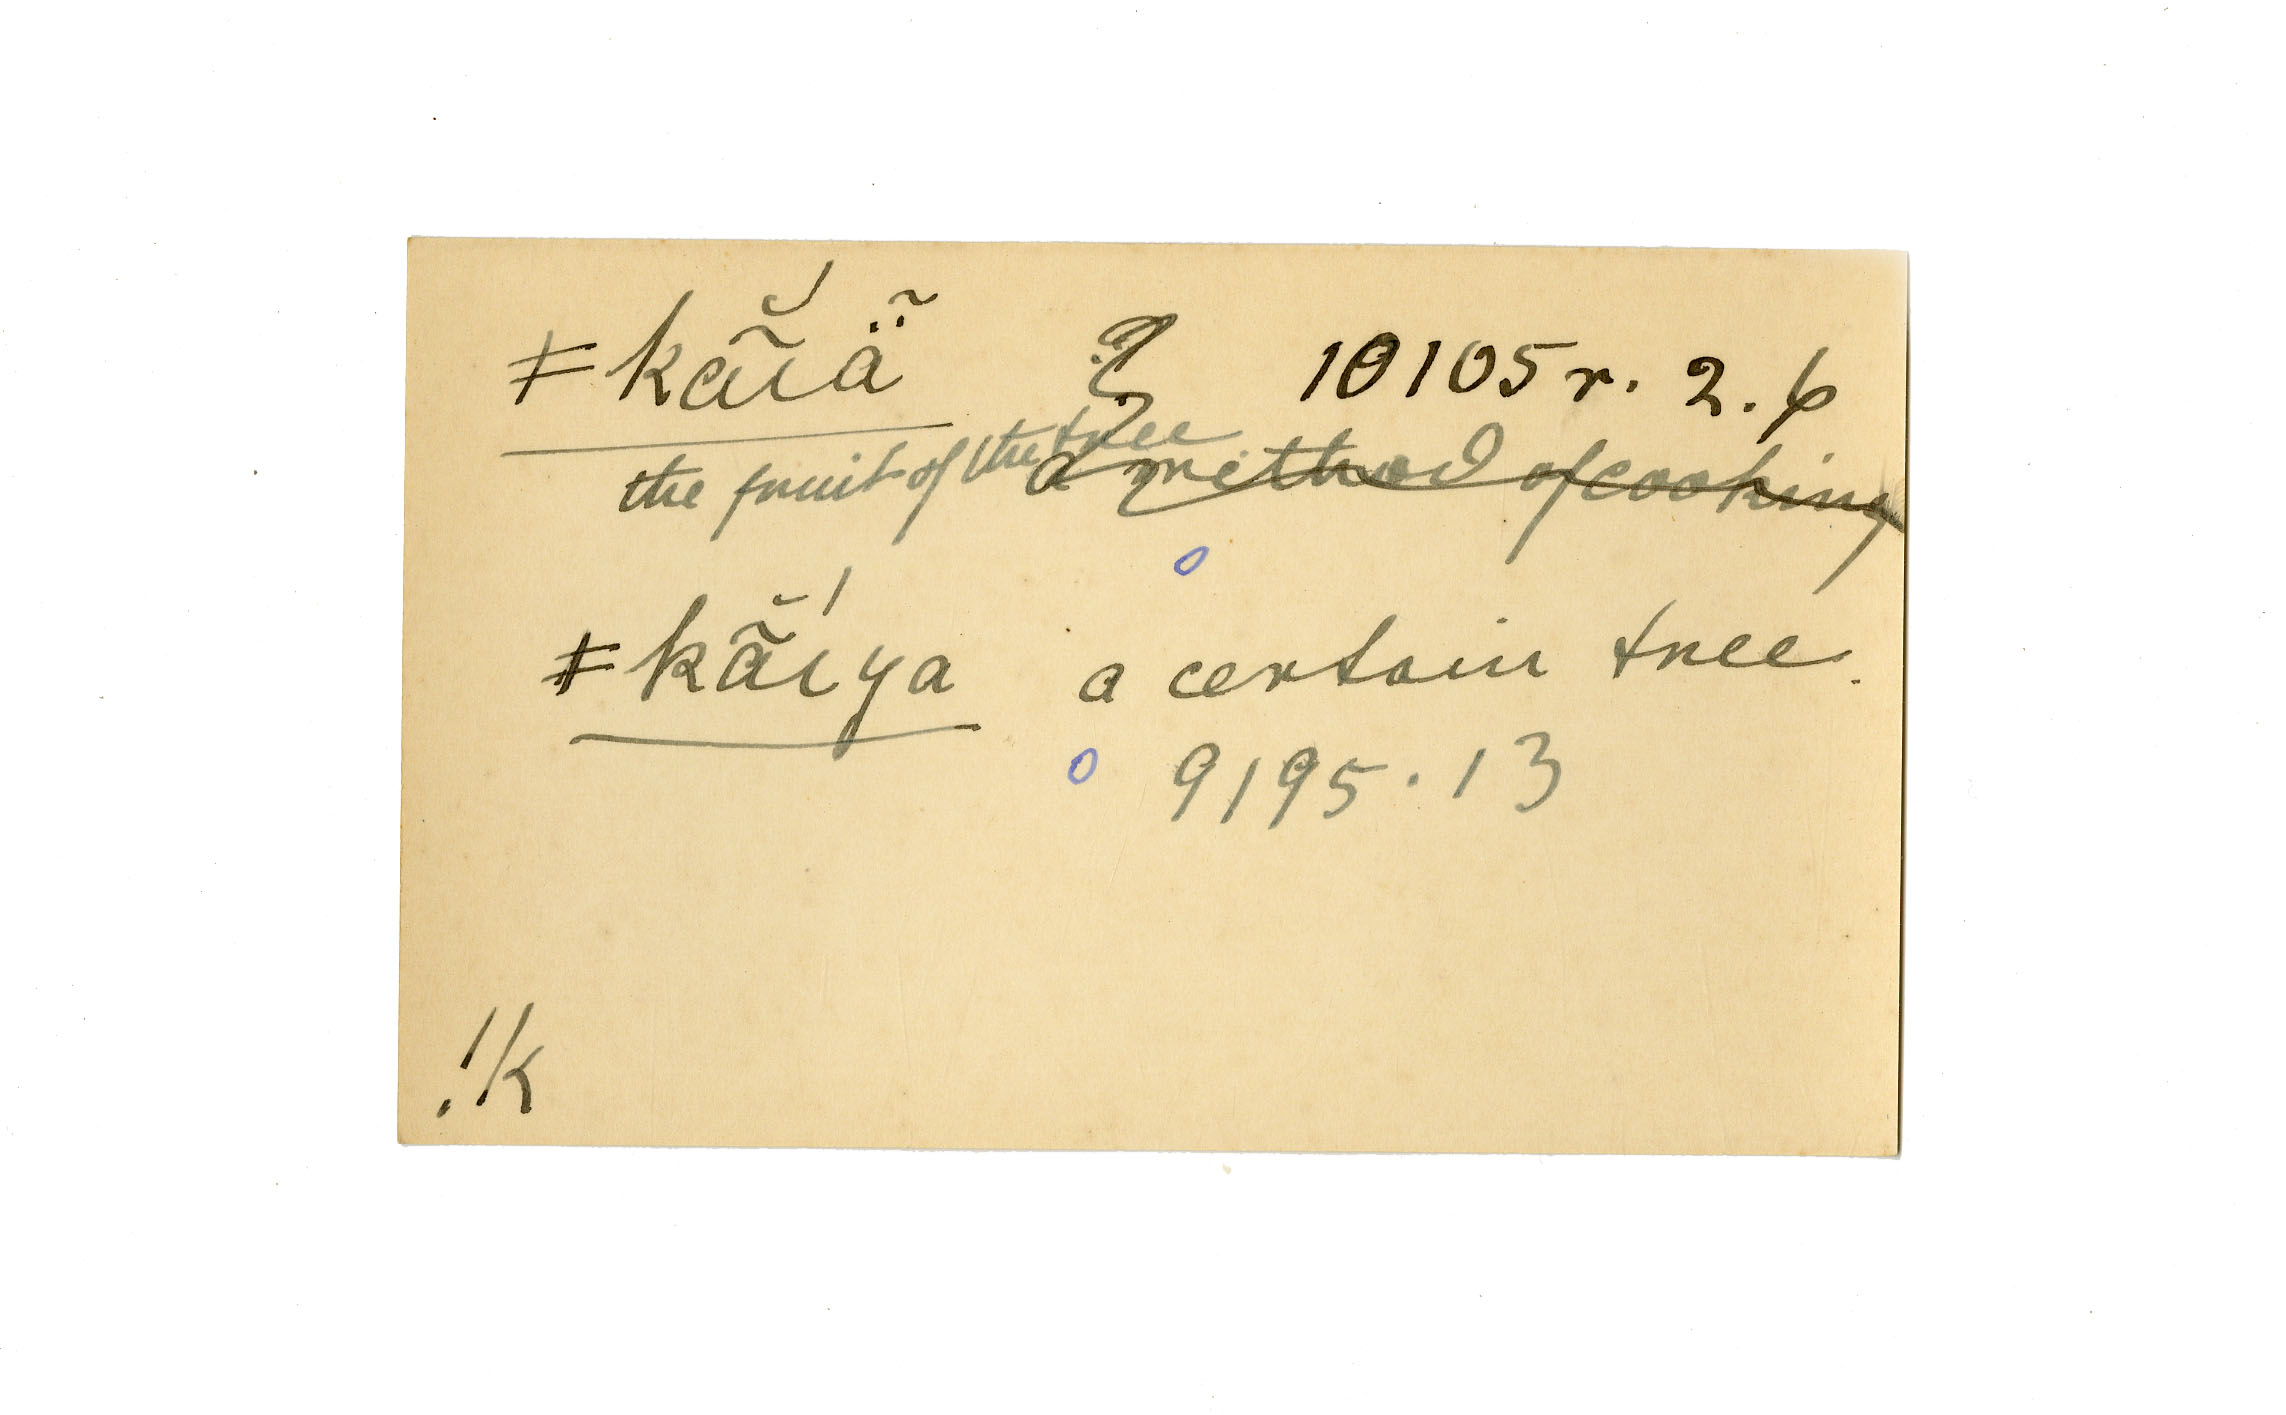 ǂkã̆́ıä̃ ? 10105 r. 2.6
the fruit of the tree a method of cooking
ǂkã̆́ıya a certain tree.
9195.13
!k